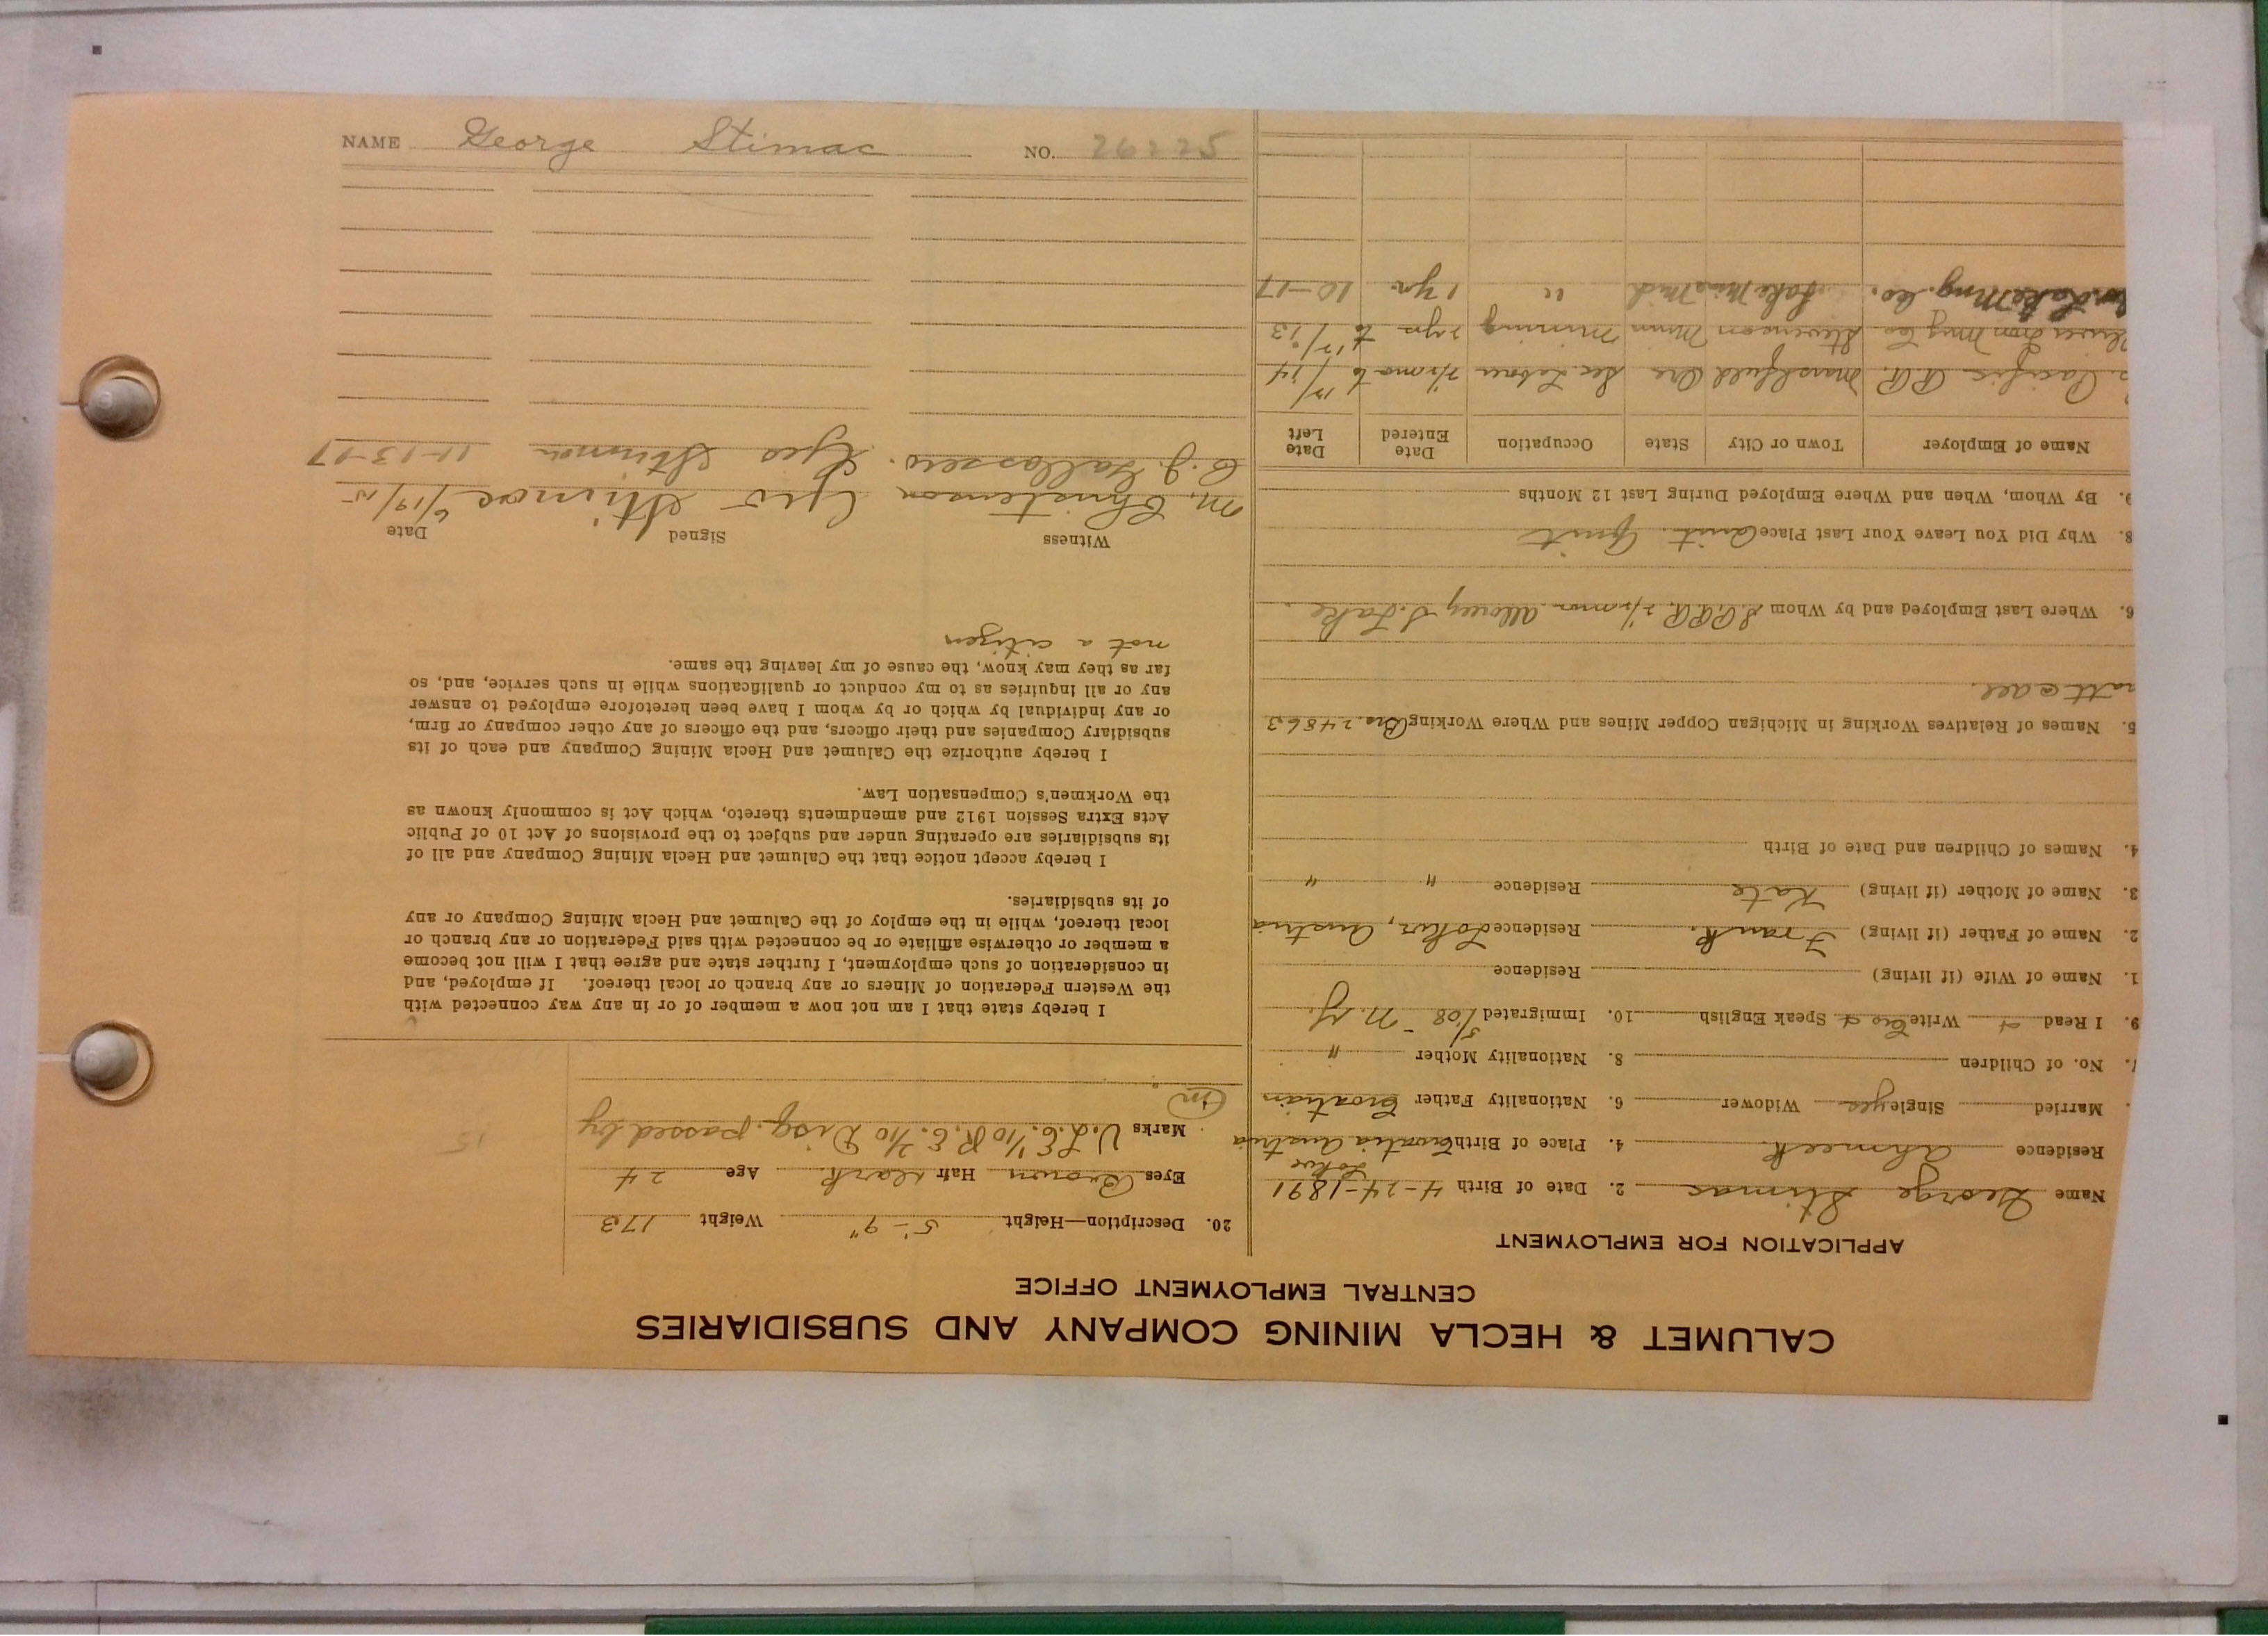 CALUMET & HECLA MINING COMPANY AND SUBSIDIARIES
CENTRAL EMPLOYMENT OFFICE
APPLICATION FOR EMPLOYMENT
Name George Stimac 2. Date of Birth 4-24-1891
Lokve
Residence Ahmeek 4. Place of Birth Croatia Austria
Married Single yes Widower 6. Nationality Father Croatian
No. of Children 8. Nationality Mother "
9. I Read & Write Cro & Speak English 10. Immigrated 5/08 - N.Y.
1. Name of Wife (if living) Residence
2. Name of Father (if living) Frank. Residence Lokve, Austria
3. Name of Mother (if living) Kate Residence " "
4. Names of Children and Date of Birth
5. Names of Relatives Working in Michigan Copper Mines and Where Working Bro. 24863
6. Where Last Employed and by Whom S.P.R.R. Lake
8. Why Did You Leave Your Last Place Quit. Quit
9. By Whom, When and Where Employed During Last 12 Months
Name of Employer Town or City State Occupation Date Entered Date Left
Pacific R.R. Marshfield Ore Sec Labor to 12/14
Iron Mng Co Stevenson Minn Mining 2 yrs to 12/13
Lake Mng. Co. Lake Mine Mich " 1 yr. 10-17
20. Description—Height 5'-9" Weight 173
Eyes Brown Hair Dark. Age 24
Marks V. L.E. 1/10 R.E. 2/10 Disq. passed by
15
I hereby state that I am not now a member of or in any way connected with
the Western Federation of Miners or any branch or local thereof. If employed, and
in consideration of such employment, I further state and agree that I will not become
a member or otherwise affiliate or be connected with said Federation or any branch or
local thereof, while in the employ of the Calumet and Hecla Mining Company or any
of its subsidiaries.
I hereby accept notice that the Calumet and Hecla Mining Company and all of
its subsidiaries are operating under and subject to the provisions of Act 10 of Public
Acts Extra Session 1912 and amendments thereto, which Act is commonly known as
the Workmen's Compensation Law.
I hereby authorize the Calumet and Hecla Mining Company and each of its
subsidiary Companies and their officers, and the officers of any other company or firm,
or any individual by which or by whom I have been heretofore employed to answer
any or all inquiries as to my conduct or qualifications while in such service, and, so
far as they may know, the cause of my leaving the same.
not a citizen
Witness Signed Date
M. Christenson Geo Stimac 6/19/15
Geo Stimac 11-13-17
NAME George Stimac NO. 26225